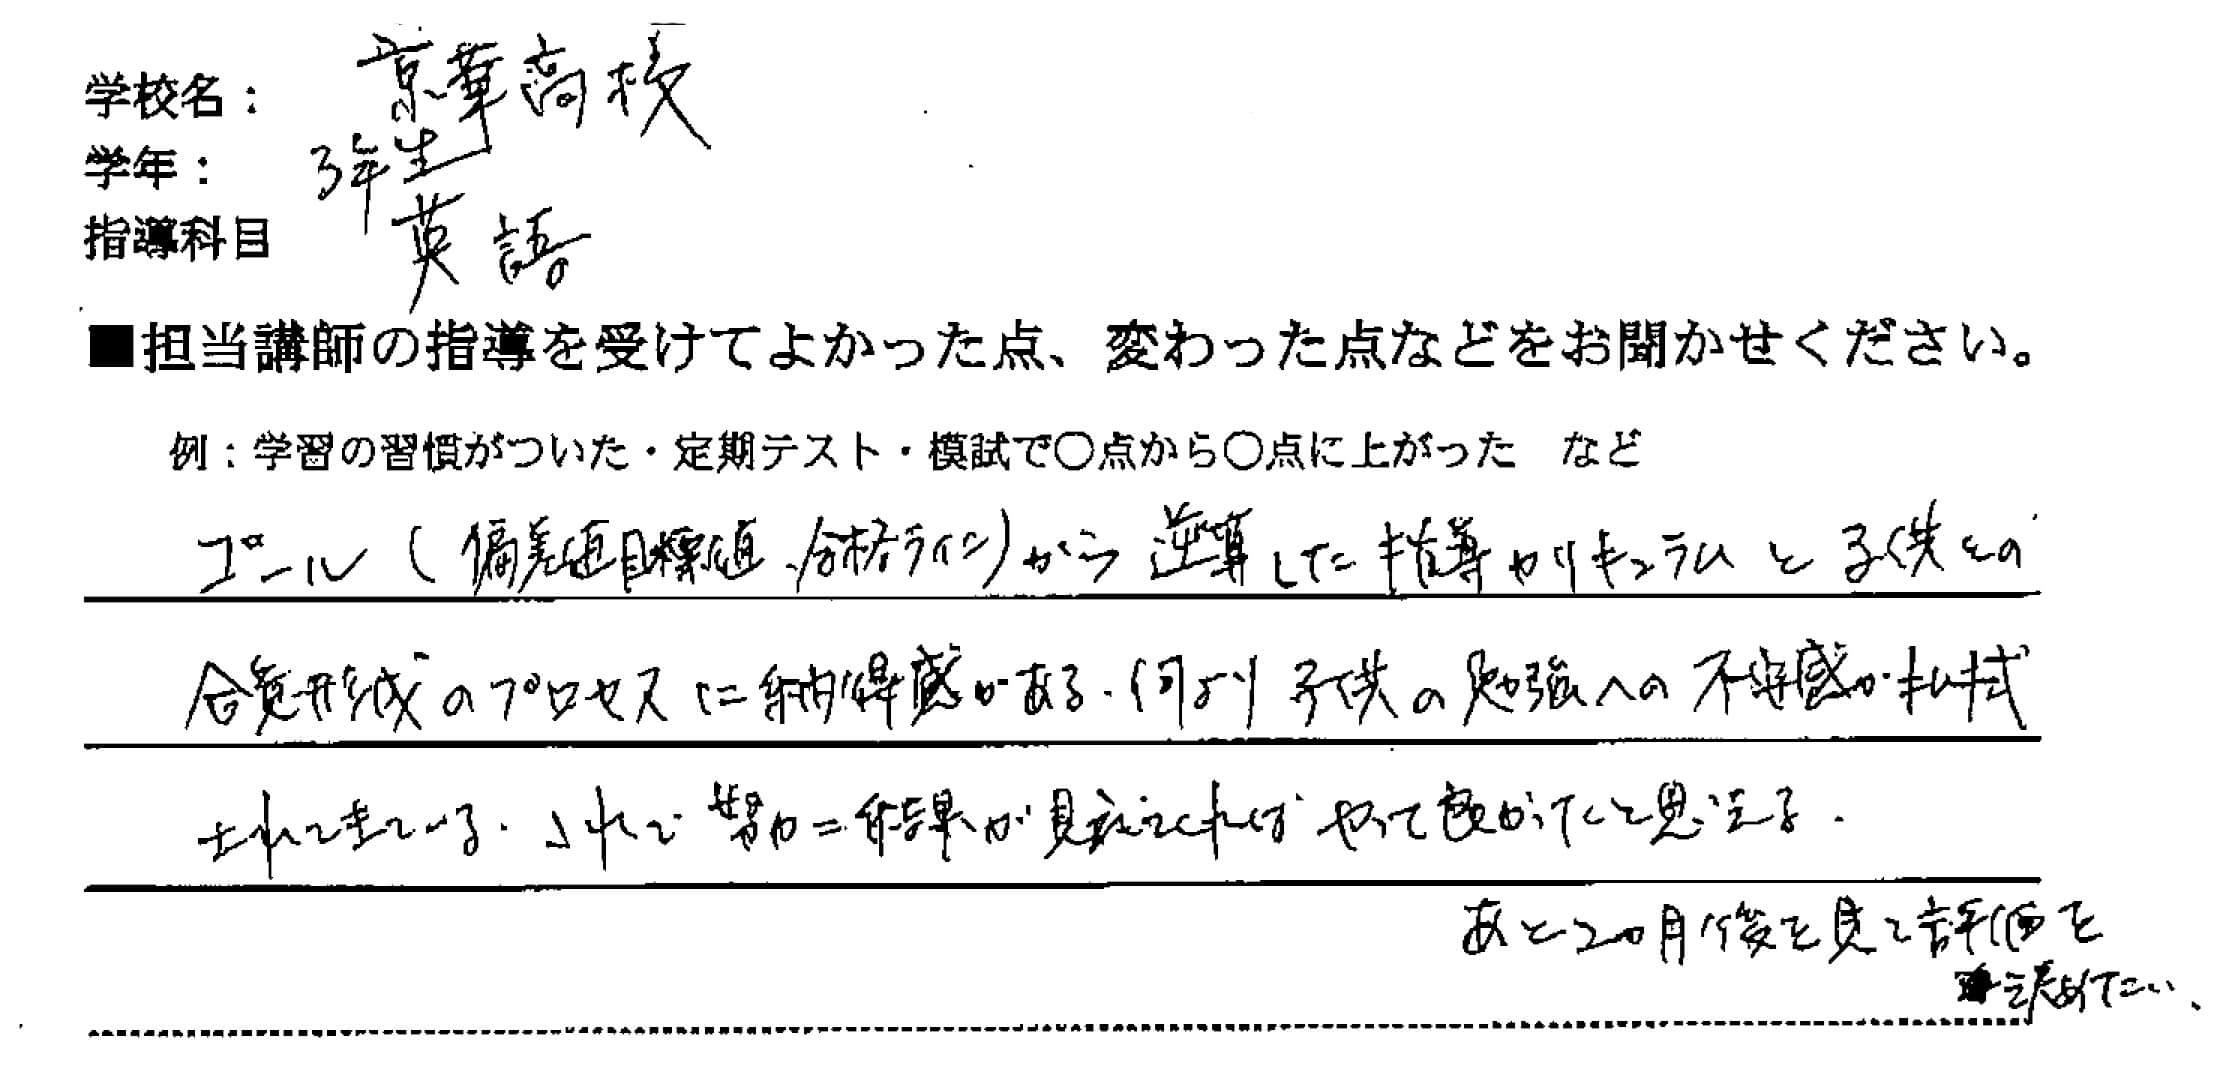 学校名： 京華高校
学年： 3年生
指導科目 英語
■担当講師の指導を受けてよかった点、変わった点などをお聞かせください。
例：学習の習慣がついた・定期テスト・模試で〇点から〇点に上がった　など
ゴール（偏差値目標値、合格ライン）から逆算した指導カリキュラムと子供との
合意形成のプロセスに納得感がある。何より子供の勉強への不安感が払拭
されてきている。これで努力＝結果が見えてくればやって良かったと思える。
あと2ヶ月後を見て評価を
決めてたい、